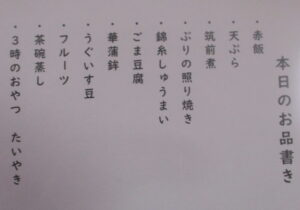 本日のお品書き
・赤飯
・天ぷら
・筑前煮
・ぶりの照り焼き
・錦糸しゅうまい
・ごま豆腐
・華蒲鉾
・うぐいす豆
・フルーツ
・茶碗蒸し
・３時のおやつ　たいやき